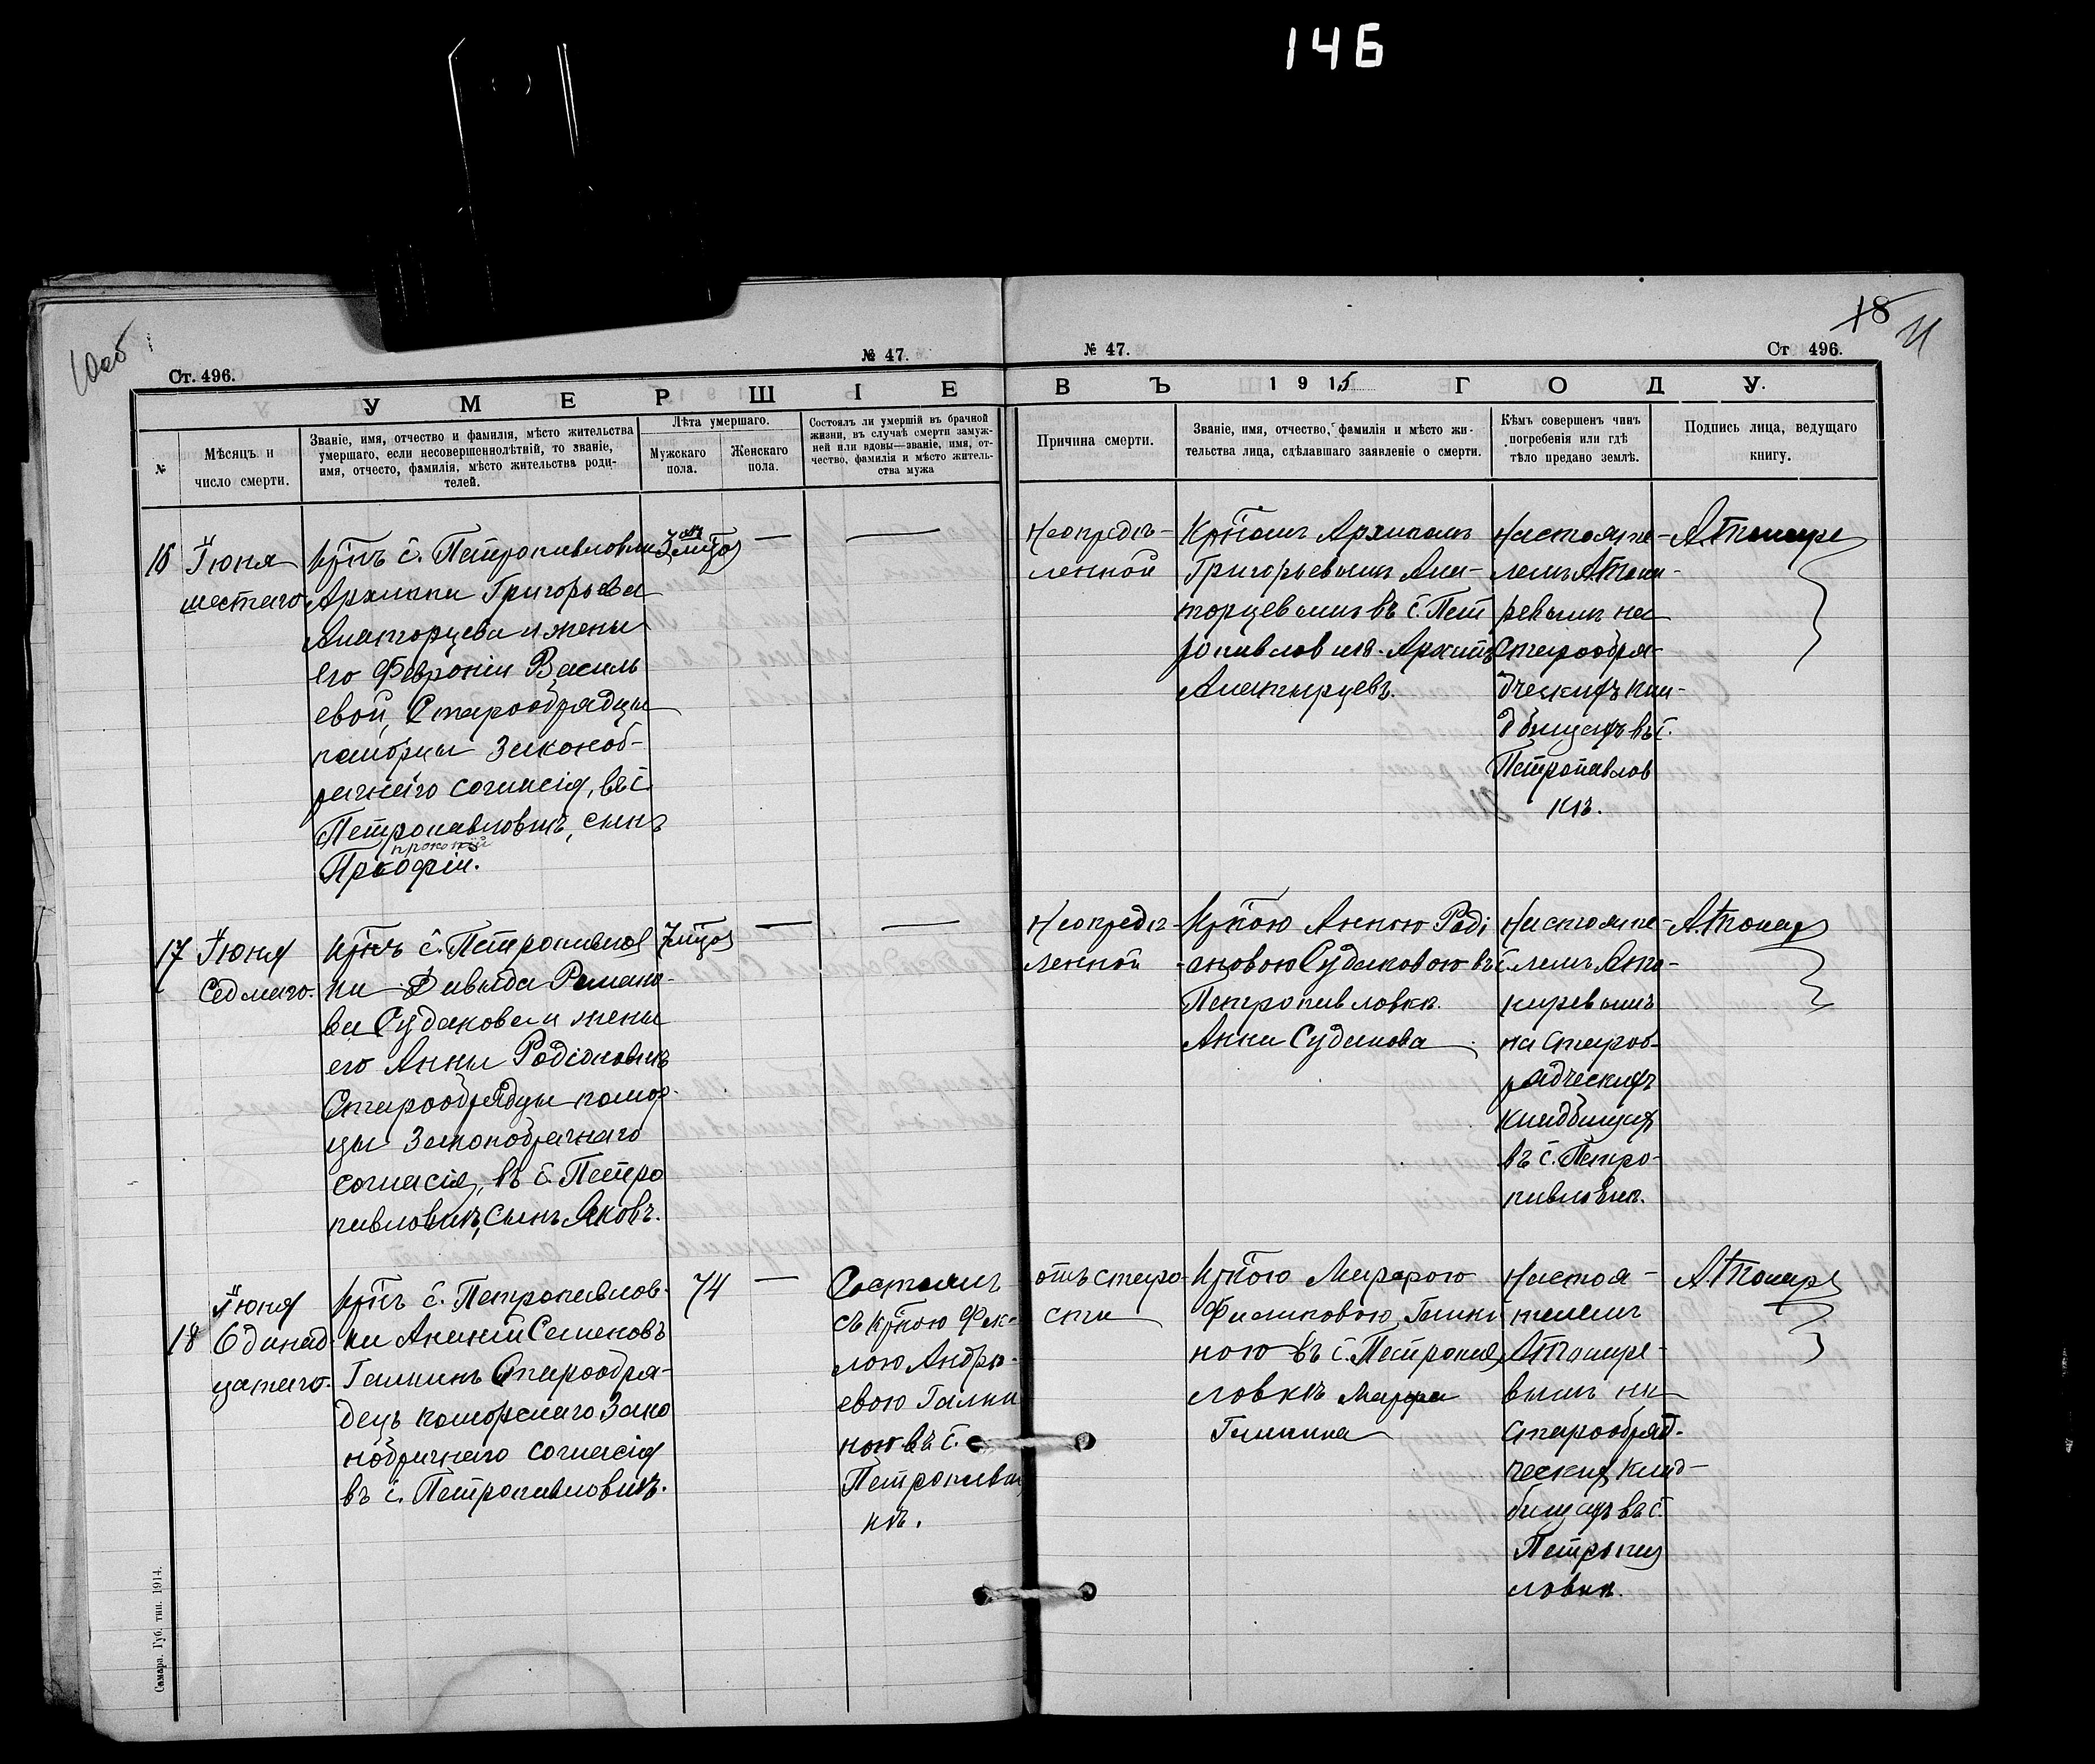 146
10об
18
11
Ст. 496.
№ 47.
№ 47.
Ст 496.
УМЕРШІЕ
ВЪ 1915 ГОДУ.
№
Мѣсяцъ и
число смерти.
Званіе, имя, отчество и фамилія, мѣсто жительства
умершаго, если несовершеннолѣтній, то званіе,
имя, отчесто, фамилія, мѣсто жительства роди-
телей.
Лѣта умершаго.
Мужскаго
пола.
Женскаго
пола.
Состоялъ ли умершій въ брачной
жизни, въ случаѣ смерти замуж-
ней или вдовы—званіе, имя, от-
чество, фамилія и мѣсто житель-
ства мужа
Причина смерти.
Званіе, имя, отчество, фамилія и мѣсто жи-
тельства лица, сдѣлавшаго заявленіе о смерти.
Кѣмъ совершенъ чинъ
погребенія или гдѣ
тѣло предано землѣ.
Подпись лица, ведущаго
книгу.
16
Іюня
шестаго
крнъ с. Петропавловки
Архипа Григорьева
Алаторцева и жены
его Февроніи Василь
евой, Старообрядцы
поморцы Законоб-
рачнаго согласія, въ с.
Петропавловкѣ, сынъ
прокопій
—
—
Неопредѣ-
ленной
Крномъ Архипомъ
Григорьевымъ Ала-
торцевымъ въ с. Пет
ропавловкѣ. Архипъ
Алаторцевъ.
Настояте-
лемъ
на
Старообря-
дческихъ кла-
дбищахъ въ с.
Петропавлов
кѣ.
17
Іюня
Седмаго.
крнъ с. Петропавлов
ки Давыда Рамано-
ва Судакова и жены
его Анны Родіоновны
Старообрядцы помор-
цы Законобрачнаго
согласія, въ с. Петро
павловкѣ, сынъ Яковъ.
—
—
Неопредѣ-
ленной
Крною Анною Роді
оновою Судаковою въ с.
Петропавловкѣ.
Анна Судакова
Настояте-
лемъ
на Старооб-
рядческихъ
кладбищахъ
въ с. Петро-
павловкѣ.
18
Іюня
Одинад-
цатаго.
крнъ с. Петропавлов-
ки Ананій Семеновъ
Галкинъ Старообря-
децъ поморскаго Зако
нобрачнаго согласія
въ с. Петропавловкѣ.
74
—
Состоялъ
съ крною Фек-
лою Андре-
евою Галки
ною въ с.
Петропавлов
кѣ.
отъ старо-
сти
Крною Марфою
Галки
ною въ с. Петропав
ловкѣ Марфа
Галкина
Настоя-
телемъ
на
Старообряд-
ческихъ клад-
бищахъ въ с.
Петропав
ловкѣ.
Самара. Губ. тип. 1914.